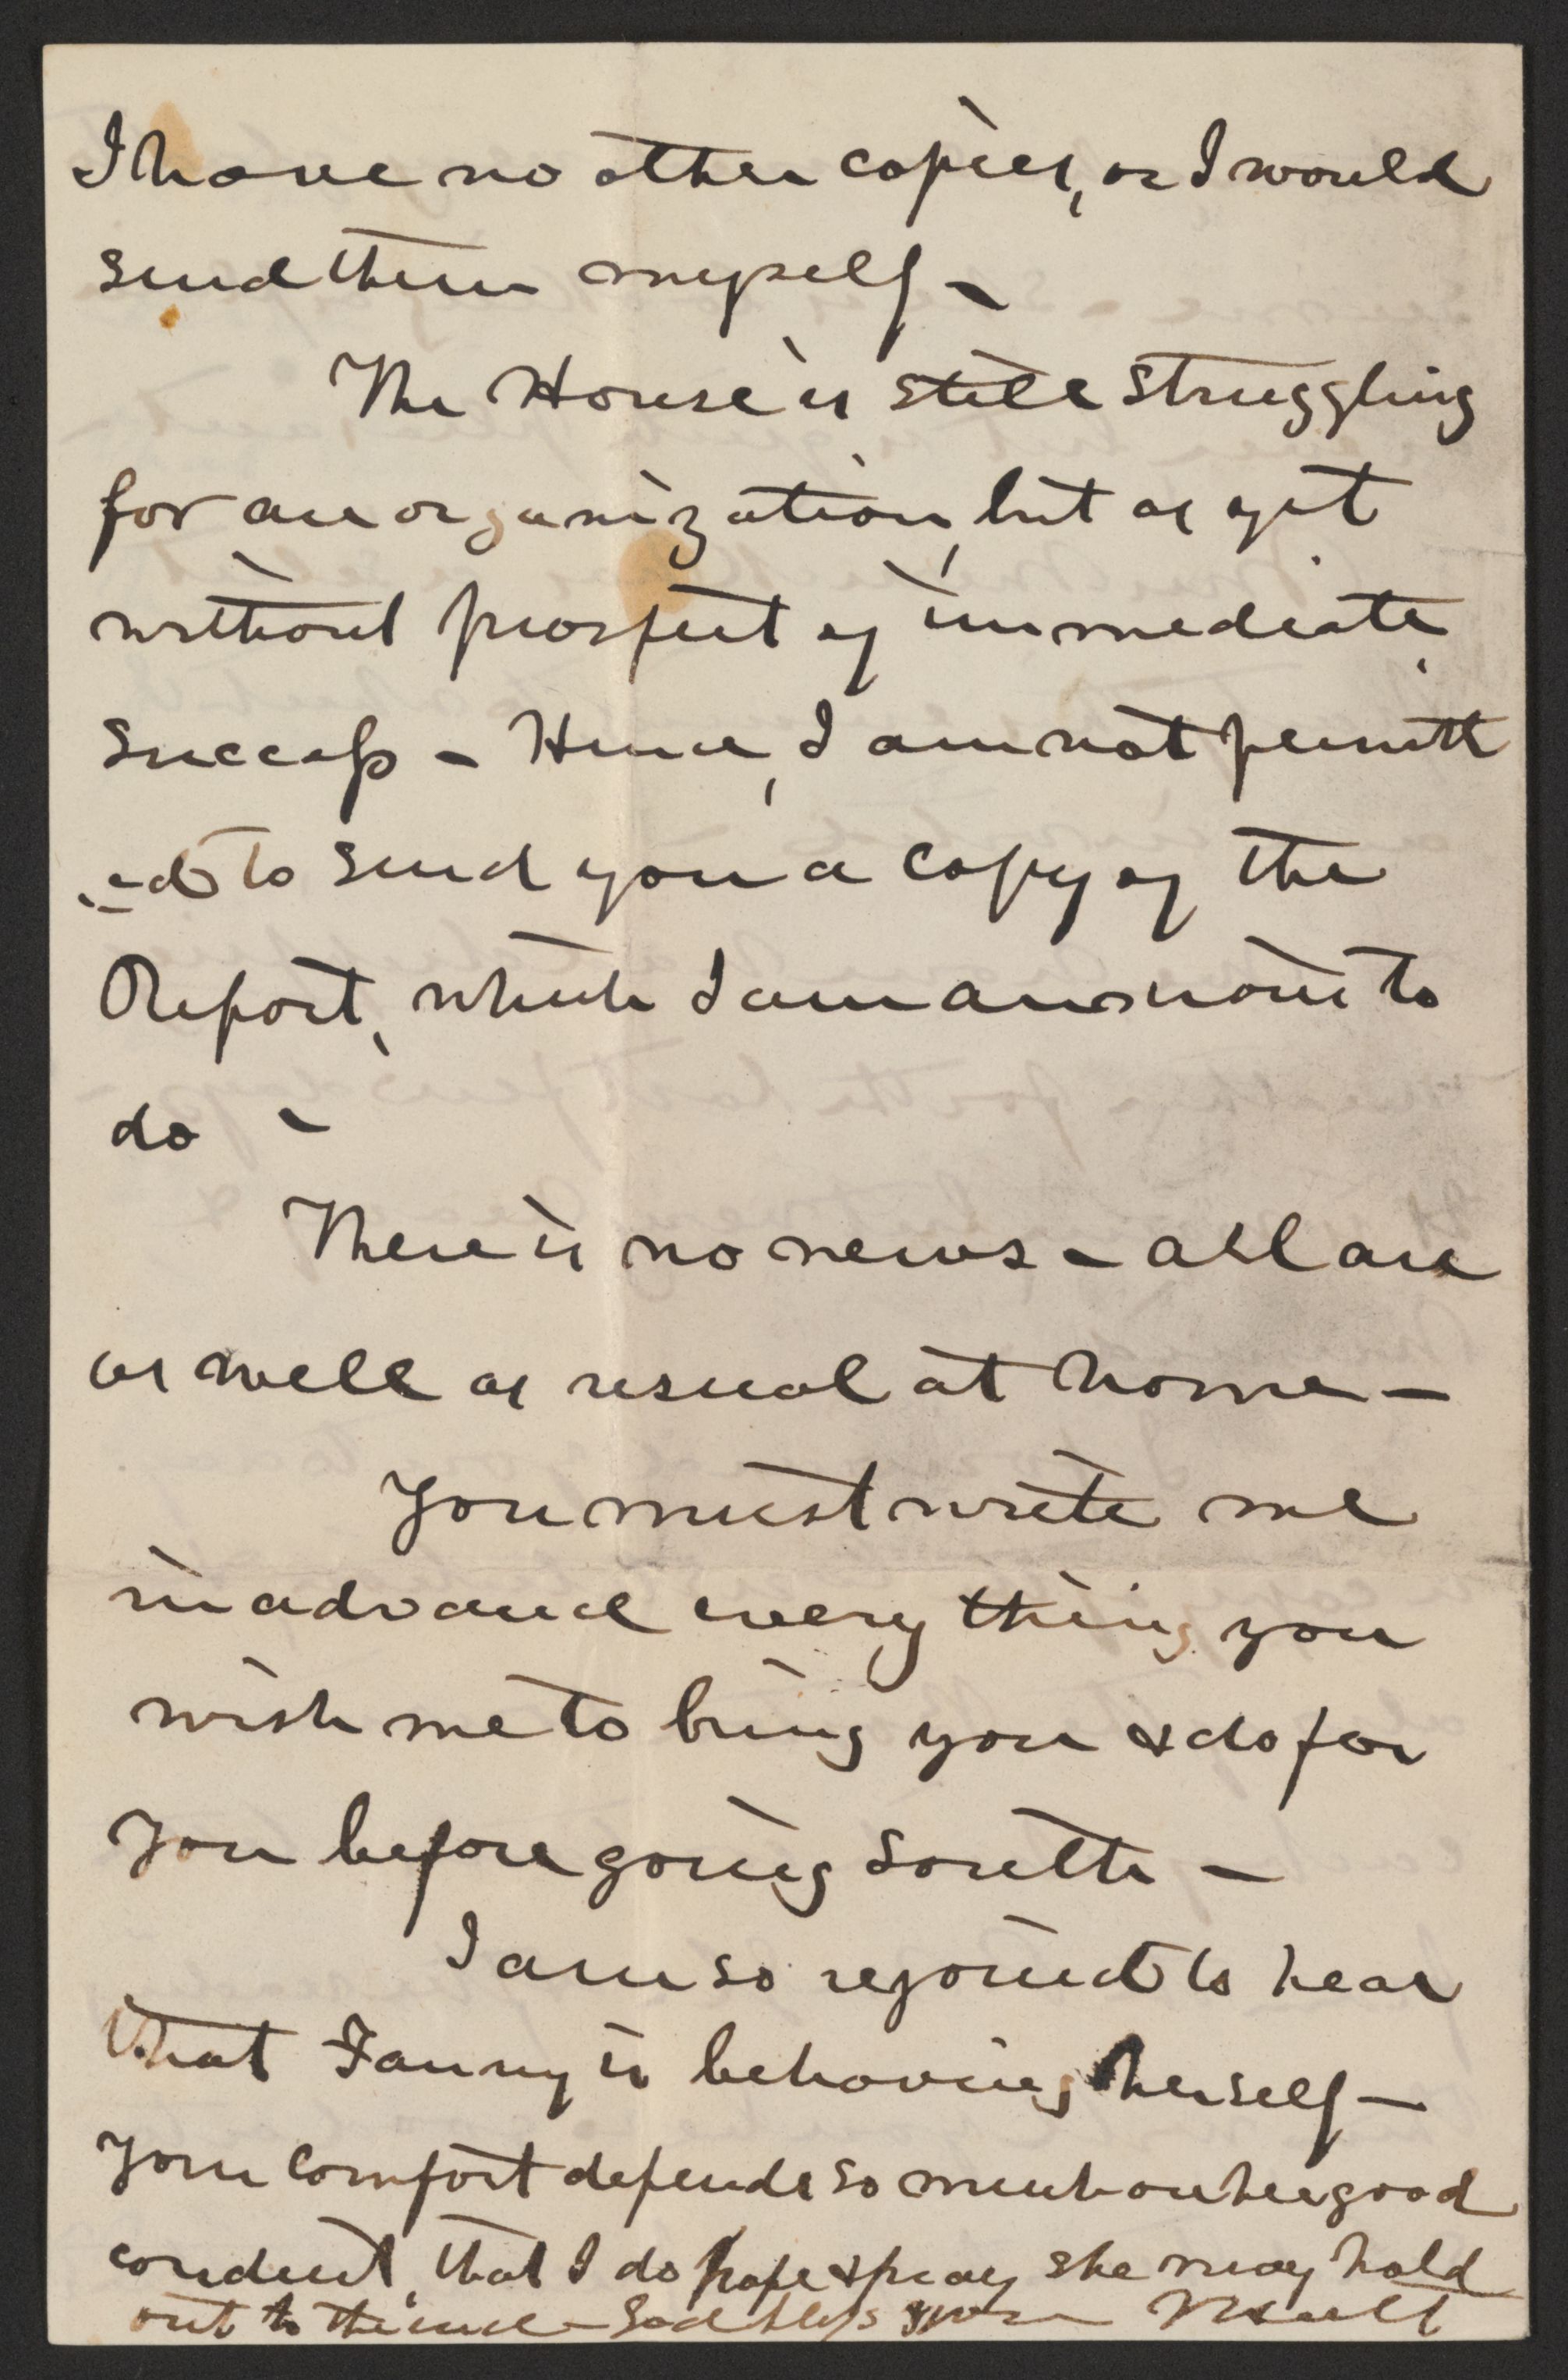 I have no other copies, or I would
send them myself –
The House is still struggling
for an organization, but as yet
without prospect of immediate
success – Hence, I am not permitt
=ed to send you a copy of the
Report, which I am anxious to
do –
There is no news – all are
as well as usual at home –
You must write me
in advance every thing you
wish me to bring you & do for
you before going South –
I am so rejoiced to hear
that Fanny is behaving herself –
your comfort depends so much on her good
conduct, that I do hope & pray she may hold
out to the end – God bless you